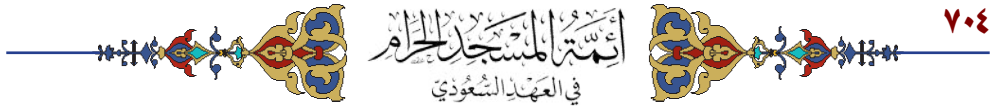 ٧٠٤
أَئِمَّةُ المَسْجِدِ الحَرَامِ
في العَهْدِ السُّعُودِيّ